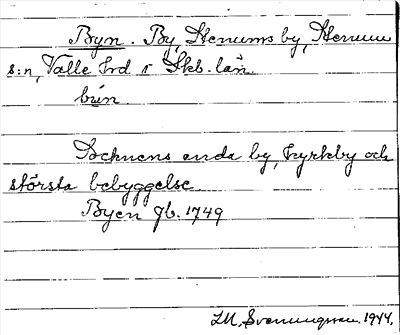 Byn. By, Stenums by, Stenum
s:n, Valle hrd i Skb. län.
bún
Socknens enda by, kyrkby och
största bebyggelse.
Byen Jb. 1749
I.M. Svenungsson. 1944.